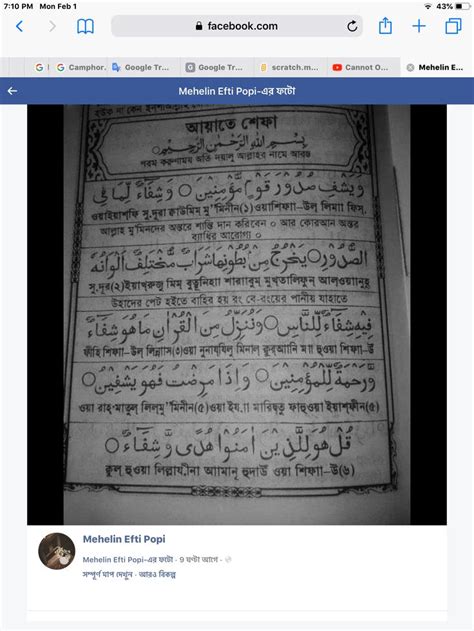 7:10 PM Mon Feb 1
43%
facebook.com
G Camphor.
Google Tr...
Google Tr...
scratch.m...
Cannot O...
Mehelin E...
Mehelin Efti Popi-এর ফটো
আয়াতে শেফা
بِسْمِ اللهِ الرَّحْمٰنِ الرَّحِيْمِ
পরম করুণাময় অতি দয়ালু আল্লাহর নামে আরম্ভ
وَيَشْفِ صُدُوْرَ قَوْمٍ مُّؤْمِنِيْنَ ○ وَشِفَاءٌ لِّمَا فِي
ওয়াইয়াশফি সুদূরা ক্বাউমিম্ মু'মিনীন(১)ওয়াশিফা-উল্ লিমা ফিস্
আল্লাহ মু'মিনদের অন্তরে শান্তি দান করিবেন ○ আর কোরআন অন্তর
ব্যাধির আরোগ্য ○
الصُّدُوْرِ ○ يَخْرُجُ مِنْ بُطُوْنِهَا شَرَابٌ مُّخْتَلِفٌ اَلْوَانُهٗ
সুদূর(২)ইয়াখরুজু মিম্ বুতূনিহা শারাবুম্ মুখতালিফুন্ আলওয়ানুহূ
উহাদের পেট হইতে বাহির হয় রং বে-রংয়ের পানীয় যাহাতে
فِيْهِ شِفَاءٌ لِّلنَّاسِ ○ وَنُنَزِّلُ مِنَ الْقُرْاٰنِ مَا هُوَ شِفَاءٌ
ফীহি শিফা-উল্ লিন্নাস(৩)ওয়া নুনাযযিলু মিনাল্ ক্বুরআনি মা হুওয়া শিফা-উ
وَّرَحْمَةٌ لِّلْمُؤْمِنِيْنَ ○ وَاِذَا مَرِضْتُ فَهُوَ يَشْفِيْنِ ○
ওয়া রাহ্‌মাতুল্ লিলমু'মিনীন(৫)ওয়া ইযা মারিদ্বতু ফাহুওয়া ইয়াশফীন(৫)
قُلْ هُوَ لِلَّذِيْنَ اٰمَنُوْا هُدًى وَّشِفَاءٌ ○
ক্বুল্ হুওয়া লিল্লাযীনা আমানূ হুদাউঁ ওয়া শিফা-উ(৬)
Mehelin Efti Popi
Mehelin Efti Popi-এর ফটো · 9 ঘণ্টা আগে ·
সম্পূর্ণ মাপ দেখুন · আরও বিকল্প